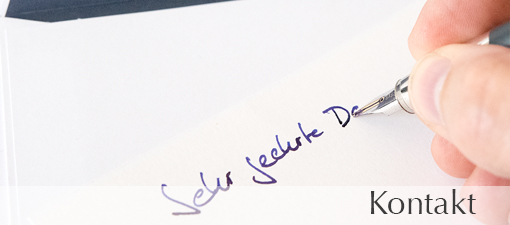 Sehr geehrte Da
Kontakt